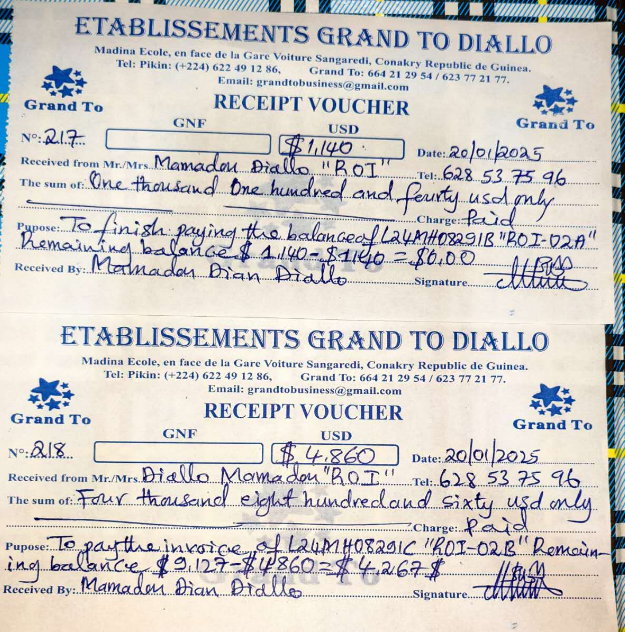 ETABLISSEMENTS GRAND TO DIALLO
Madina Ecole, en face de la Gare Voiture Sangaredi, Conakry Republic de Guinea.
Tel: Pikin: (+224) 622 49 12 86, Grand To: 664 21 29 54 / 623 77 21 77.
Email: grandtobusiness@gmail.com
Grand To RECEIPT VOUCHER Grand To
GNF USD
N°: 217 $1,140 Date: 20/01/2025
Received from Mr./Mrs. Mamadou Diallo "ROI" Tel: 628 53 75 96
The sum of: One thousand One hundred and fourty usd only
Charge: Paid
Pupose: To finish paying the balance of L24MH08291B "ROI-02A"
Remaining balance $ 1.140-$1140 = $0,00
Received By: Mamadou Dian Diallo Signature
ETABLISSEMENTS GRAND TO DIALLO
Madina Ecole, en face de la Gare Voiture Sangaredi, Conakry Republic de Guinea.
Tel: Pikin: (+224) 622 49 12 86, Grand To: 664 21 29 54 / 623 77 21 77.
Email: grandtobusiness@gmail.com
Grand To RECEIPT VOUCHER Grand To
GNF USD
N°: 218 $ 4.860 Date: 20/01/2025
Received from Mr./Mrs. Diallo Mamadou "ROI" Tel: 628 53 75 96
The sum of: Four thousand eight hundred and sixty usd only
Charge: Paid
Pupose: To pay the invoice of L24MH08291C "ROI-02B" Remain-
ing balance $ 9,127-$4860=$ 4,267$
Received By: Mamadou Dian Diallo Signature